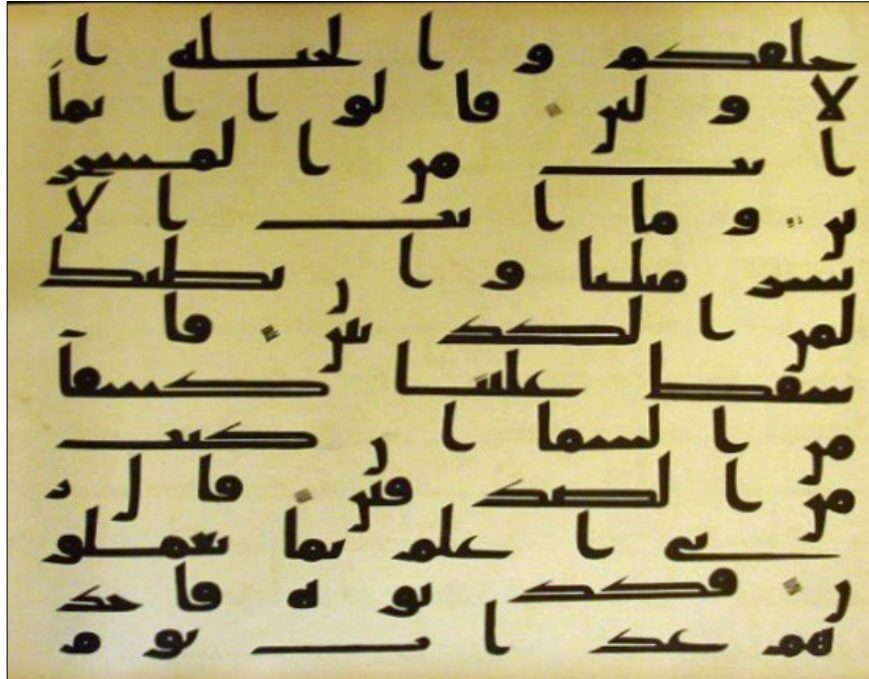 خلقكم و ا لجبله ا
لا و لين قا لو ا ا نما
ا نت من ا لمسحر
ين و ما ا نت ا لا
بشر مثلنا و ا ن نظنك
لمن ا لكذبين فا
سقط علينا كسفا
من ا لسما ا ن كنت
من ا لصدقين قا ل ر
بي ا علم بما تعملو
ن فكذبو ه فا خذ
هم عذ ا ب يو م